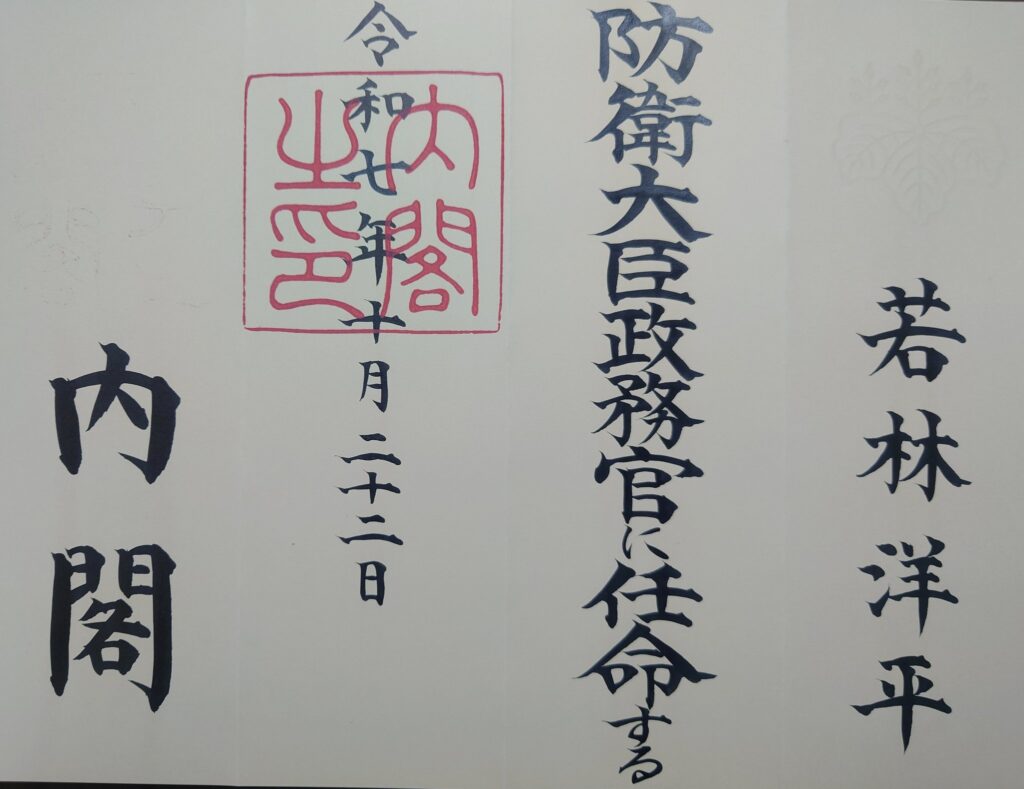 若林洋平
防衛大臣政務官に任命する
令和七年十月二十二日
内閣之印
内閣